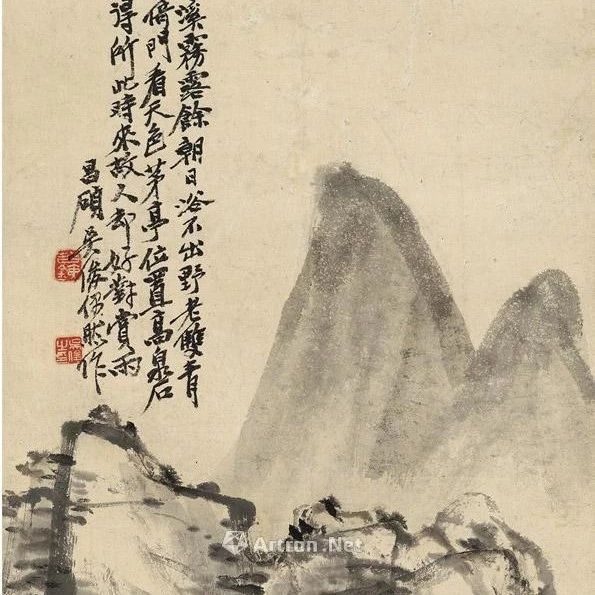 溪霧露餘朝日浴不出野老雙
倚門看天色茅亭位置高泉石
得所此時來故人却好對賞雨
昌碩吳俊 作
吳俊之印
Artron.Net